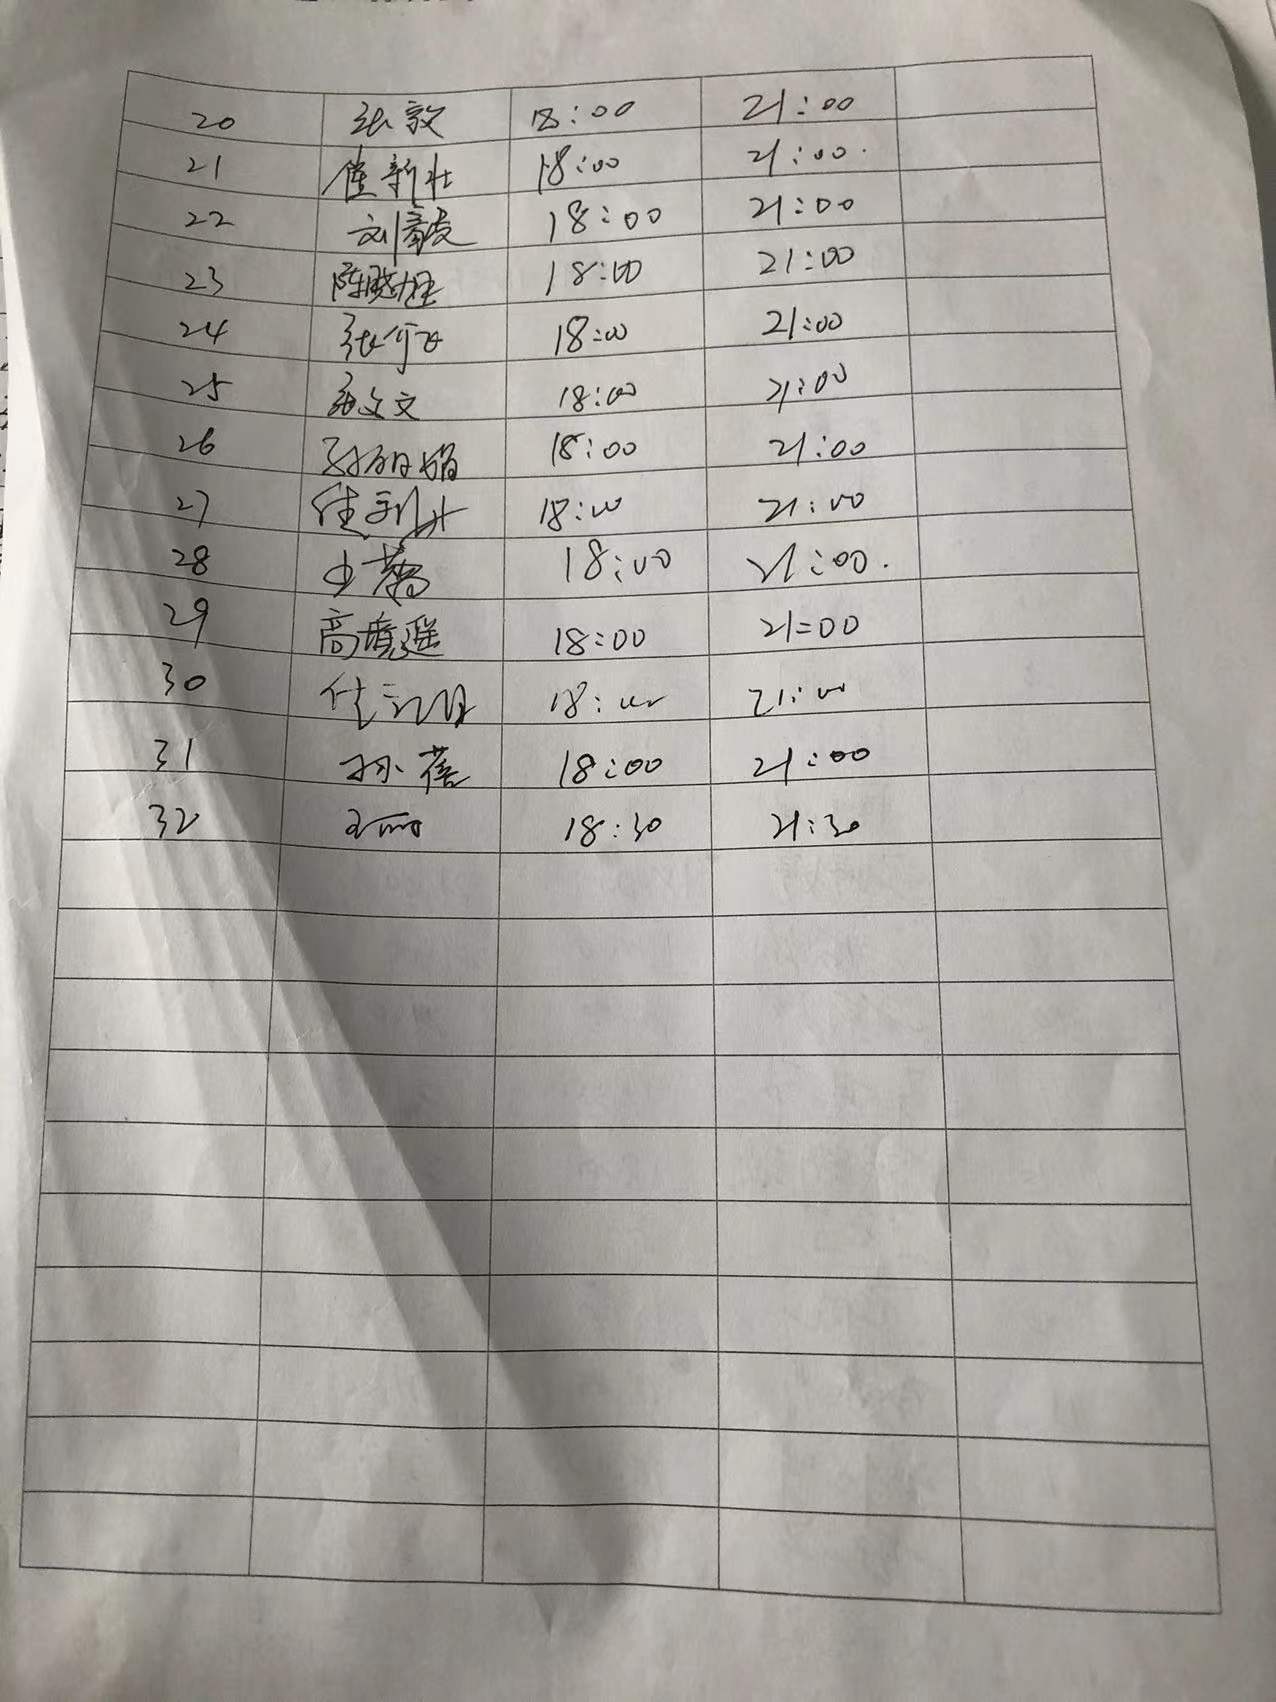 20 张敦 18:00 21:00
21 崔新壮 18:00 21:00.
22 刘毅 18:00 21:00
23 陈晓旭 18:00 21:00
24 18:00 21:00
25 文 18:00 21:00
26 娟 18:00 21:00
27 18:00 21:00
28 18:00 21:00.
29 高境遥 18:00 21:00
30 18:00 21:00
31 孙蓓 18:00 21:00
32 王丽 18:30 21:30